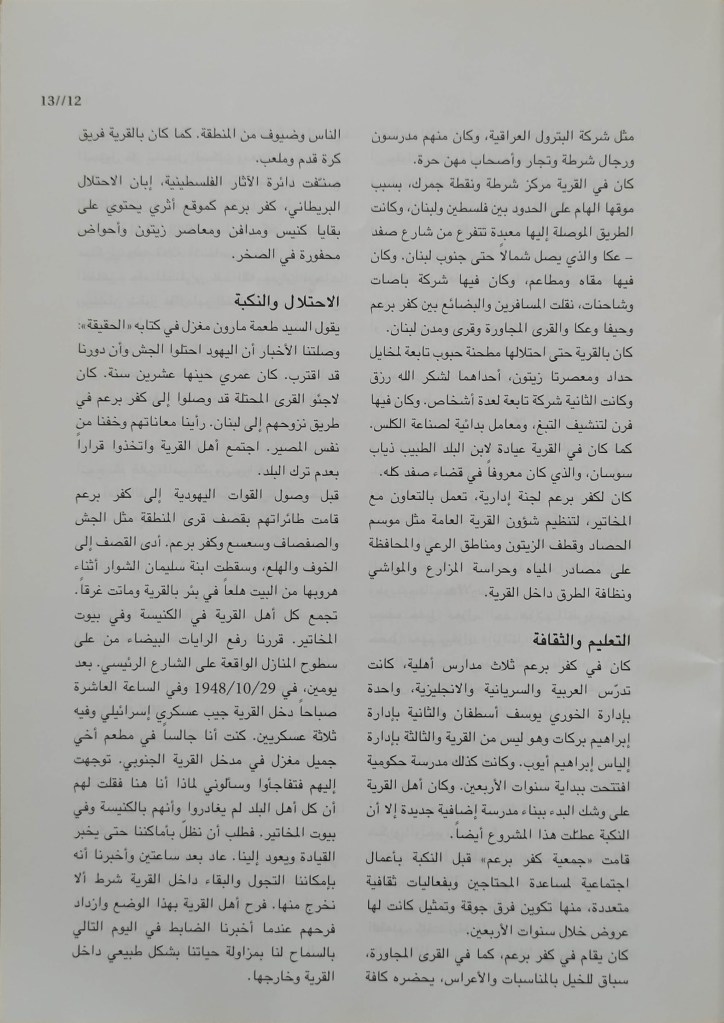 13//12
مثل شركة البترول العراقية، وكان منهم مدرسون
ورجال شرطة وتجار وأصحاب مهن حرة.
كان في القرية مركز شرطة ونقطة جمرك، بسبب
موقها الهام على الحدود بين فلسطين ولبنان، وكانت
الطريق الموصلة إليها معبدة تتفرع من شارع صفد
– عكا والذي يصل شمالاً حتى جنوب لبنان. وكان
فيها مقاه ومطاعم، وكان فيها شركة باصات
وشاحنات، نقلت المسافرين والبضائع بين كفر برعم
وحيفا وعكا والقرى المجاورة وقرى ومدن لبنان.
كان بالقرية حتى احتلالها مطحنة حبوب تابعة لمخايل
حداد ومعصرتا زيتون، أحداهما لشكر الله رزق
وكانت الثانية شركة تابعة لعدة أشخاص. وكان فيها
فرن لتنشيف التبغ، ومعامل بدائية لصناعة الكلس.
كما كان في القرية عيادة لابن البلد الطبيب ذياب
سوسان، والذي كان معروفاً في قضاء صفد كله.
كان لكفر برعم لجنة إدارية، تعمل بالتعاون مع
المخاتير، لتنظيم شؤون القرية العامة مثل موسم
الحصاد وقطف الزيتون ومناطق الرعي والمحافظة
على مصادر المياه وحراسة المزارع والمواشي
ونظافة الطرق داخل القرية.
التعليم والثقافة
كان في كفر برعم ثلاث مدارس أهلية، كانت
تدرّس العربية والسريانية والانجليزية، واحدة
بإدارة الخوري يوسف أسطفان والثانية بإدارة
إبراهيم بركات وهو ليس من القرية والثالثة بإدارة
إلياس إبراهيم أيوب. وكانت كذلك مدرسة حكومية
افتتحت ببداية سنوات الأربعين. وكان أهل القرية
على وشك البدء ببناء مدرسة إضافية جديدة إلا أن
النكبة عطّلت هذا المشروع أيضاً.
قامت «جمعية كفر برعم» قبل النكبة بأعمال
اجتماعية لمساعدة المحتاجين وبفعاليات ثقافية
متعددة، منها تكوين فرق جوقة وتمثيل كانت لها
عروض خلال سنوات الأربعين.
كان يقام في كفر برعم، كما في القرى المجاورة،
سباق للخيل بالمناسبات والأعراس، يحضره كافة
الناس وضيوف من المنطقة. كما كان بالقرية فريق
كرة قدم وملعب.
صنّفت دائرة الآثار الفلسطينية، إبان الاحتلال
البريطاني، كفر برعم كموقع أثري يحتوي على
بقايا كنيس ومدافن ومعاصر زيتون وأحواض
محفورة في الصخر.
الاحتلال والنكبة
يقول السيد طعمة مارون مغزل في كتابه «الحقيقة»:
وصلتنا الأخبار أن اليهود احتلوا الجش وأن دورنا
قد اقترب. كان عمري حينها عشرين سنة. كان
لاجئو القرى المحتلة قد وصلوا إلى كفر برعم في
طريق نزوحهم إلى لبنان. رأينا معاناتهم وخفنا من
نفس المصير. اجتمع أهل القرية واتخذوا قراراً
بعدم ترك البلد.
قبل وصول القوات اليهودية إلى كفر برعم
قامت طائراتهم بقصف قرى المنطقة مثل الجش
والصفصاف وسعسع وكفر برعم. أدى القصف إلى
الخوف والهلع، وسقطت ابنة سليمان الشوار أثناء
هروبها من البيت هلعاً في بئر بالقرية وماتت غرقاً.
تجمع كل أهل القرية في الكنيسة وفي بيوت
المخاتير. قررنا رفع الرايات البيضاء من على
سطوح المنازل الواقعة على الشارع الرئيسي. بعد
يومين، في 1948/10/29 وفي الساعة العاشرة
صباحاً دخل القرية جيب عسكري إسرائيلي وفيه
ثلاثة عسكريين. كنت أنا جالساً في مطعم أخي
جميل مغزل في مدخل القرية الجنوبي. توجهت
إليهم فتفاجأوا وسألوني لماذا أنا هنا فقلت لهم
أن كل أهل البلد لم يغادروا وأنهم بالكنيسة وفي
بيوت المخاتير. فطلب أن نظلّ بأماكننا حتى يخبر
القيادة ويعود إلينا. عاد بعد ساعتين وأخبرنا أنه
بإمكاننا التجول والبقاء داخل القرية شرط ألا
نخرج منها. فرح أهل القرية بهذا الوضع وازداد
فرحهم عندما أخبرنا الضابط في اليوم التالي
بالسماح لنا بمزاولة حياتنا بشكل طبيعي داخل
القرية وخارجها.